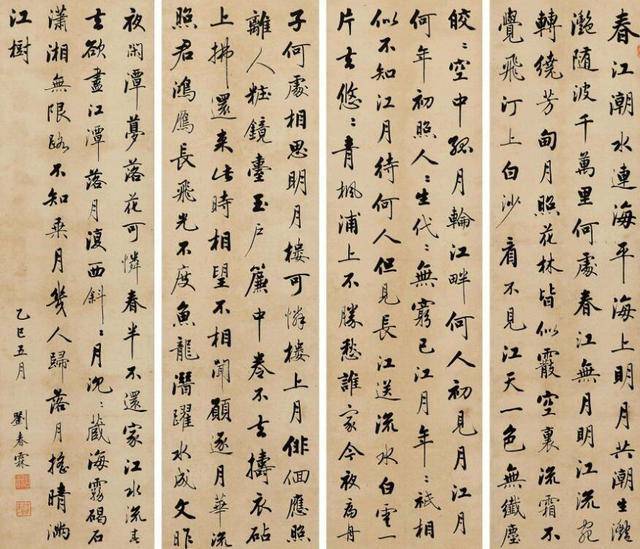 春江潮水連海平海上明月共潮生灔
灔随波千萬里何處春江無月明江流宛
轉繞芳甸月照花林皆似霰空裏流霜不
覺飛汀上白沙看不見江天一色無纖塵
皎〻空中孤月輪江畔何人初見月江月
何年初照人〻生代〻無窮已江月年〻祇相
似不知江月待何人但見長江送流水白雲一
片去悠〻青楓浦上不勝愁誰家今夜扁舟
子何處相思明月樓可憐樓上月徘徊應照
離人粧鏡臺玉户簾中卷不去擣衣砧
上拂還来此時相望不相聞願逐月華流
照君鴻鴈長飛光不度魚龍潛躍水成文昨
夜閑潭夢落花可憐春半不還家江水流春
去欲盡江潭落月復西斜〻月沈〻藏海霧碣石
瀟湘無限路不知乘月幾人歸落月搖晴滿
江樹
乙巳五月 劉春霖